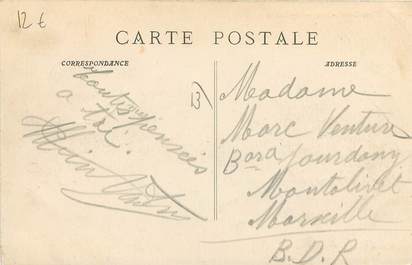 12 €
CARTE POSTALE
CORRESPONDANCE
ADRESSE
Toutes pensées
a toi.
Madame
Marc Venture
Bard Jourdany
Montolivet
Marseille
B.D.R